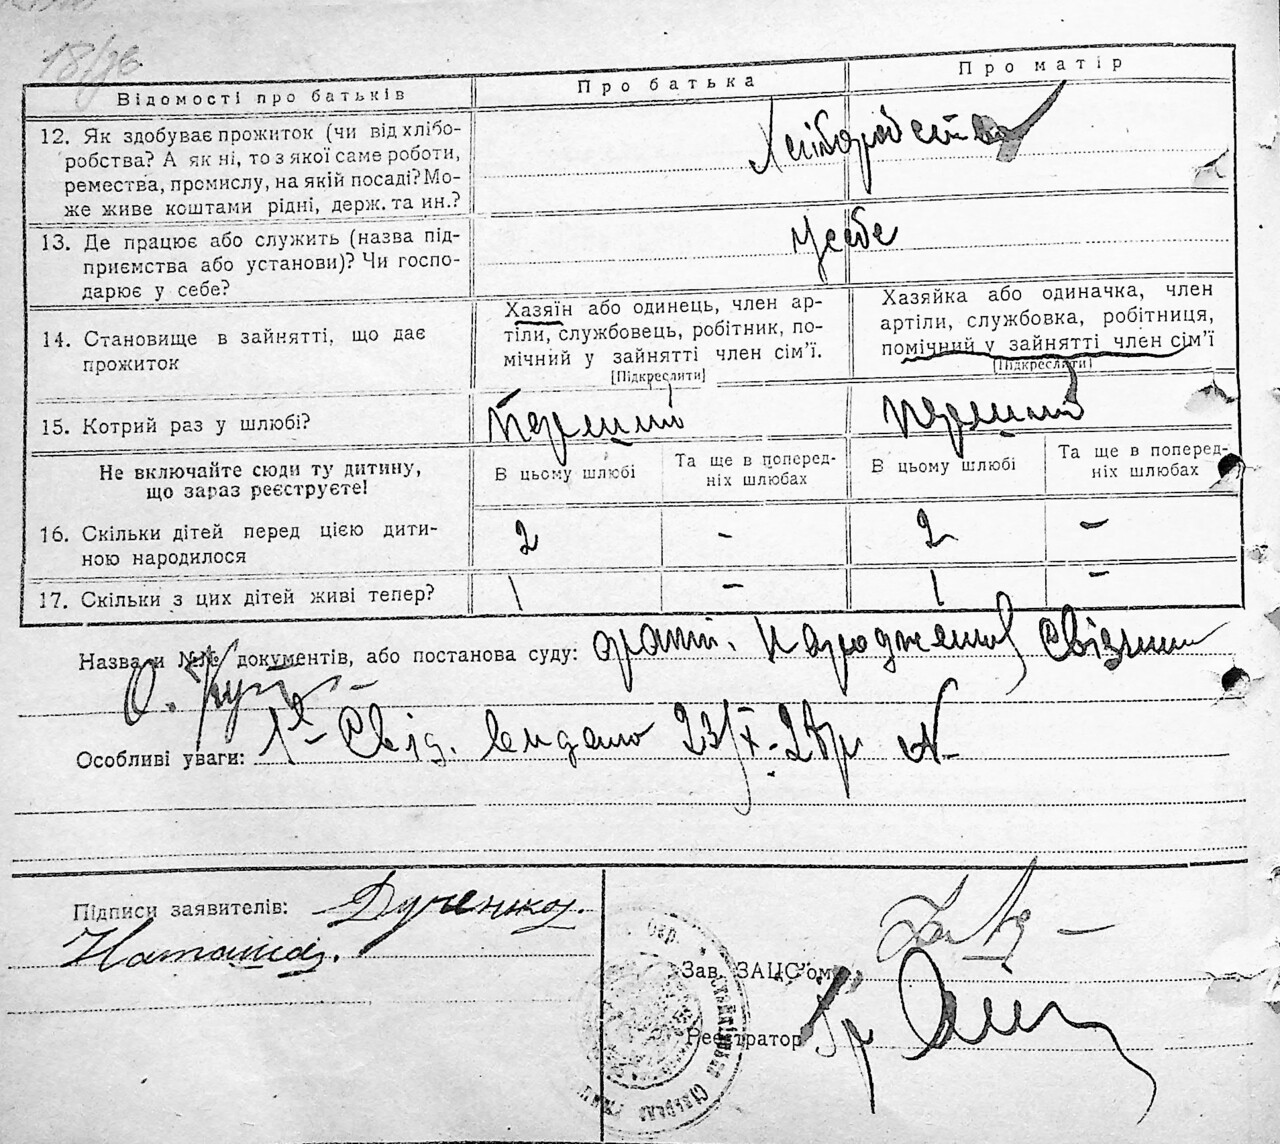 18/
Відомості про батьків
Про батька
Про матір
12. Як здобуває прожиток (чи від хлібо-
робства? А як ні, то з якої саме роботи,
ремества, промислу, на якій посаді? Мо-
же живе коштами рідні, держ. та ин.?
Хліборобство
13. Де працює або служить (назва під-
приємства або установи)? Чи госпо-
дарює у себе?
У себе
14. Становище в зайнятті, що дає
прожиток
Хазяїн або одинець, член ар-
тіли, службовець, робітник, по-
мічний у зайнятті член сім'ї.
[Підкреслити]
Хазяйка або одиначка, член
артіли, службовка, робітниця,
помічний у зайнятті член сім'ї
[Підкреслити]
15. Котрий раз у шлюбі?
Перший
перший
Не включайте сюди ту дитину,
що зараз реєструєте!
В цьому шлюбі
Та ще в поперед-
ніх шлюбах
В цьому шлюбі
Та ще в поперед-
ніх шлюбах
16. Скільки дітей перед цією дити-
ною народилося
2 - 2 -
17. Скільки з цих дітей живі тепер?
1 - 1 -
Назва и №№ документів, або постанова суду:
О.
Особливі уваги: Свід. видано 23/X-28р №
Підписи заявителів:
Наташа.
Зав. ЗАЦС'ом
Реєстратор